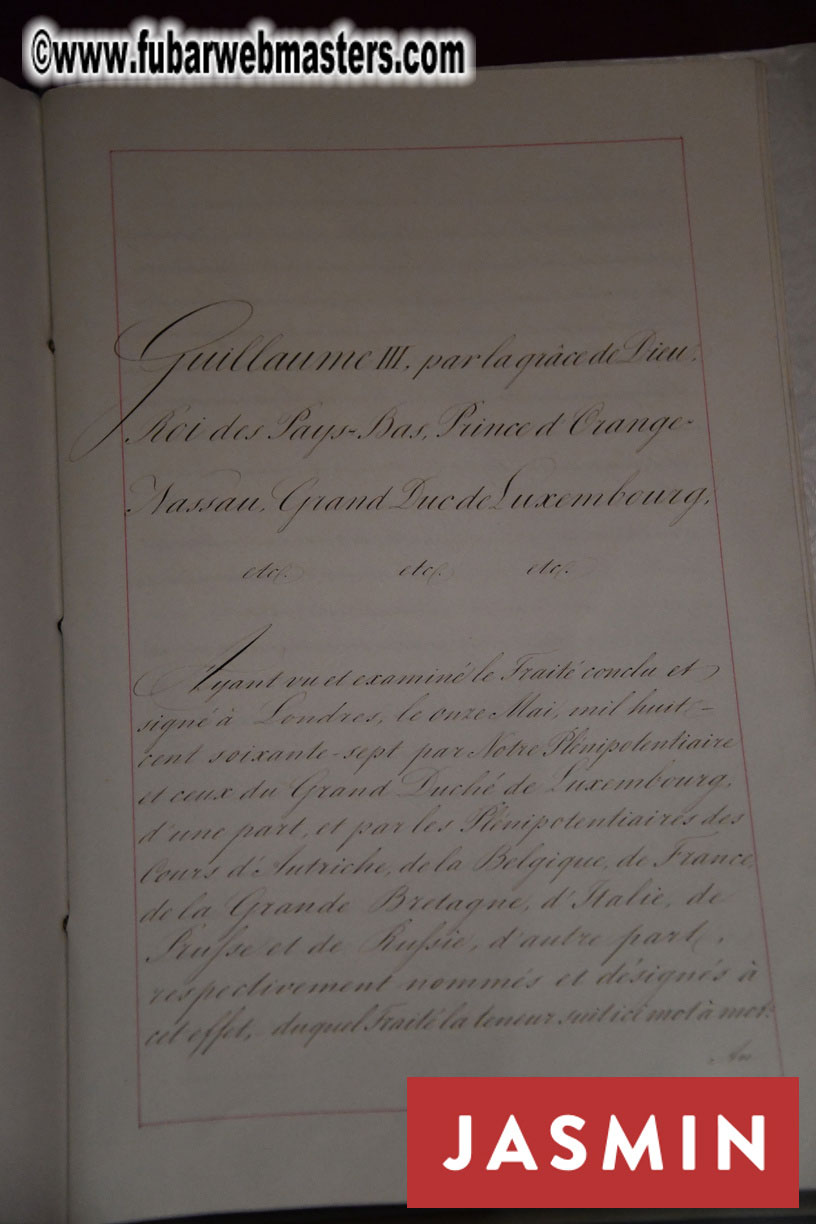 ©www.fubarwebmasters.com
Guillaume III, par la grâce de Dieu,
Roi des Pays-Bas, Prince d'Orange-
Nassau, Grand Duc de Luxembourg,
etc. etc. etc.
Ayant vu et examiné le Traité conclu et
signé à Londres, le onze Mai, mil huit-
cent soixante-sept par Notre Plénipotentiaire
et ceux du Grand Duché de Luxembourg,
d'une part, et par les Plénipotentiaires des
Cours d'Autriche, de la Belgique, de France,
de la Grande Bretagne, d'Italie, de
Prusse et de Russie, d'autre part,
respectivement nommés et désignés à
cet effet, duquel Traité la teneur suit ici mot à mot:
Au
JASMIN